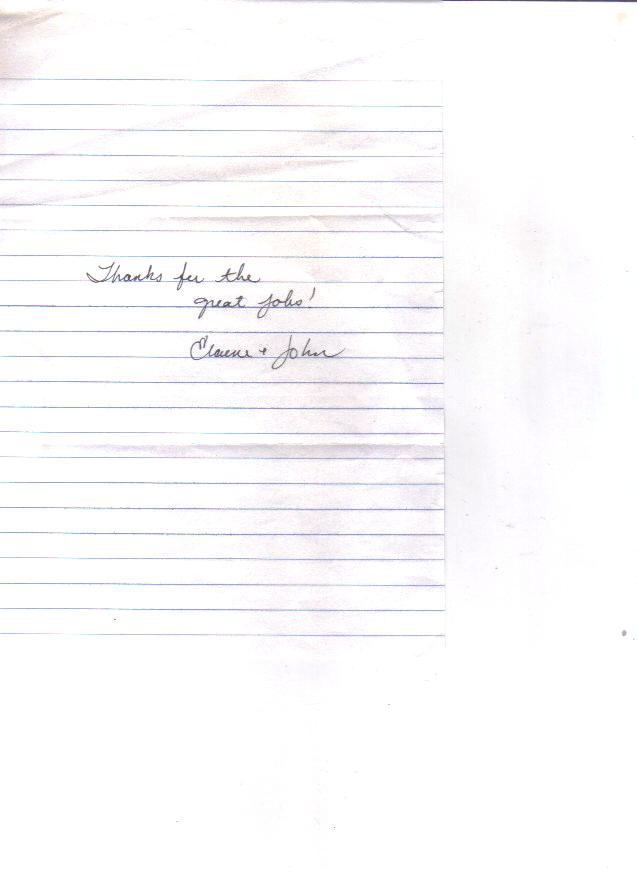 Thanks for the
great jobs!
+ John